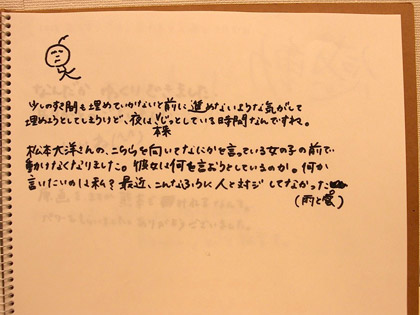 少しの隙間も埋めていかないと前に進めないような気がして
埋めようとしてしまうけど、夜は じっとしている時間なんですね。
本来
松本大洋さんの、こちらを向いてなにかを言っている女の子の前で
動けなくなりました。彼女は何を言おうとしているのか。何か
言いたいのは私？最近、こんなふうに人と対ジしてなかった
(雨と雲)